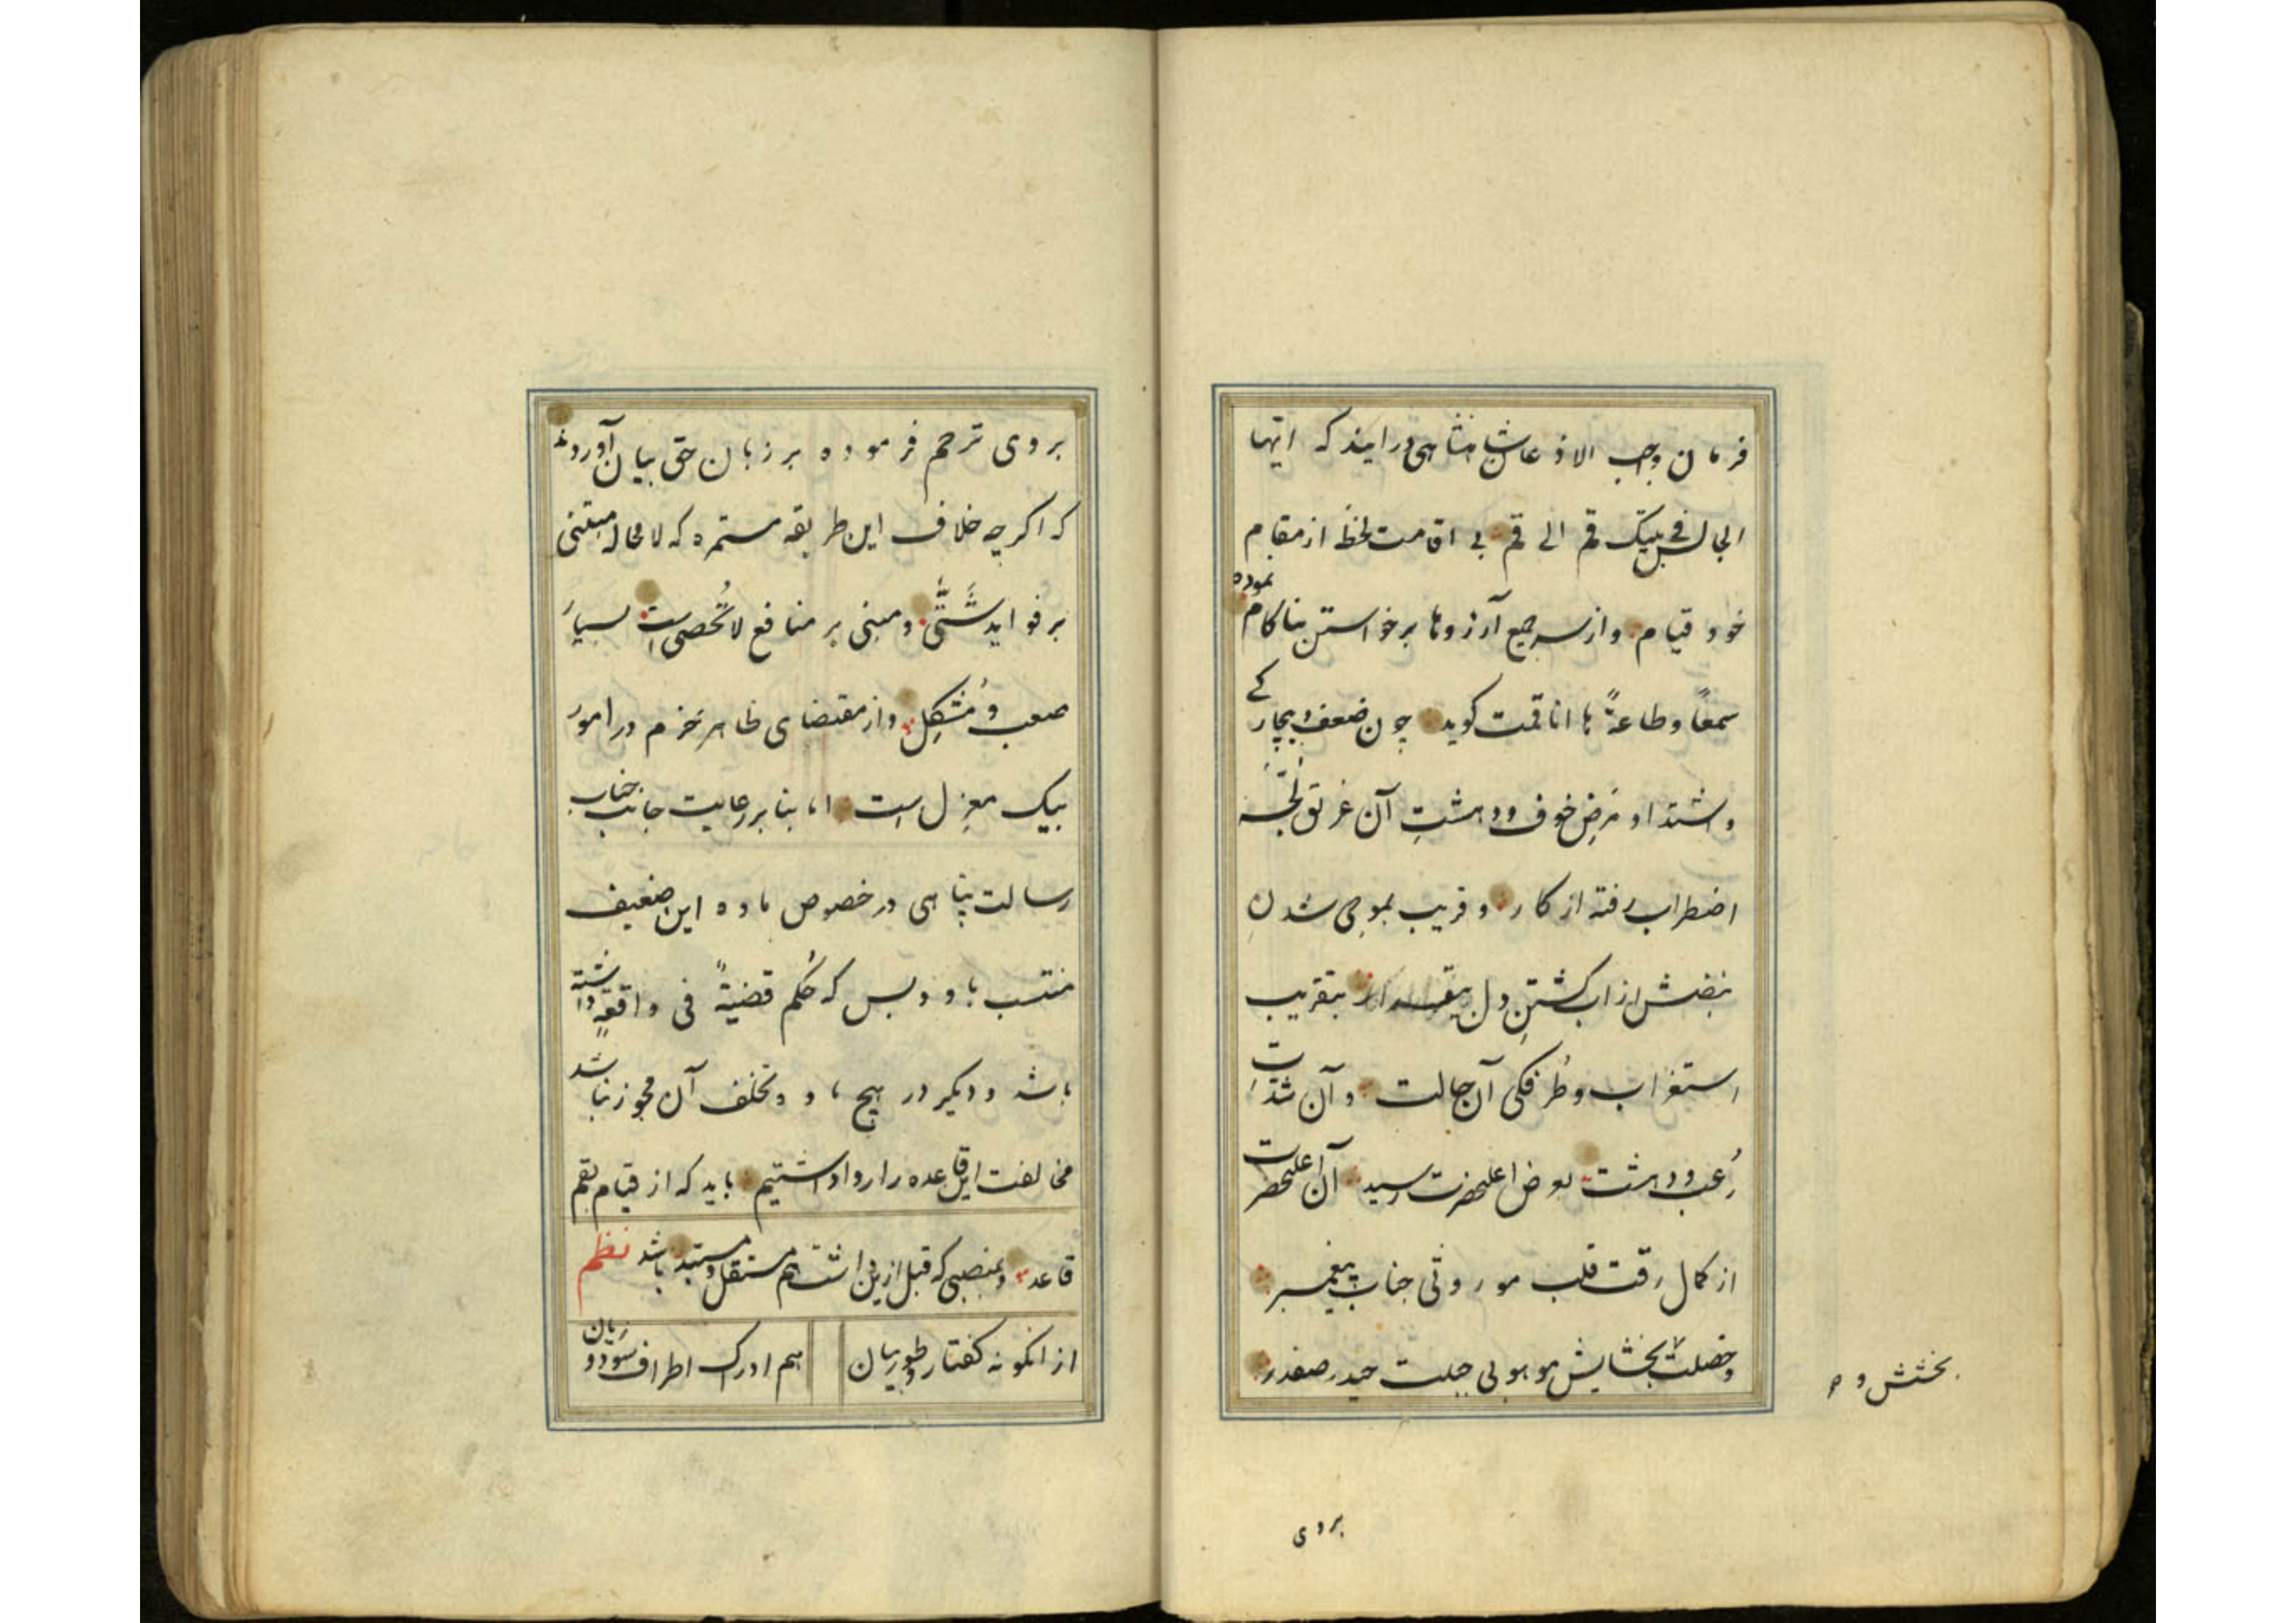 فرمان واجب الاذعان شاهنشاهی درایند که ایتها
البجال فی بیتک قم الی قم بی اقامت لحظه از مقام
خود قیام و از سر جمیع آرزوها برخواستن بناکام نموده
سمعاً و طاعةً یا انا قمت کوید چون ضعف بیچارکی
و اشتداد مرض خوف و دهشتِ آن غریق لُجّهٔ
اضطراب رفته از کار و قریب بموجی شدنِ
نبضش از اب کشتنِ دل بیقرار بتقریب
استغراب و طُرفکی آن حالت و آن شدّتِ
رُعب و دهشت بعرض اعلیحضرت رسید آن اعلیحضرت
از کمال رقت قلب موروثی جناب پیغمبر
و خصلت بخشایش موهوبی جبلت حیدر صفدر
بخشش و
بروی
بروی ترحم فرموده بر زبان حق بیان آوردند
که اکرچه خلاف این طریقه مستمره که لامحاله مبتنی
بر فواید شَتّی و مبنی بر منافع لاتُحصی است بسیار
صعب و مُشکِل و از مقتضای ظاهر حزم در امور
بیک معزل است اما بنابر رعایت جانب جناب
رسالت پناهی در خصوص ماده این ضعیف
منتسب باو و بس که حُکم قضیةٌ فی واقعةٍ داشته
باشد و دیکر در هیچ ماده تخلف آن مجوز نباشد
مخالفت این قاعده را روا داشتیم باید که از قیام بقم
قاعد و بمنصبی که قبل ازین داشت هم مستقل و مستبد باشد نظم
از انکونه کفتار و طور بیان
هم ادرک اطراف سود و زیان